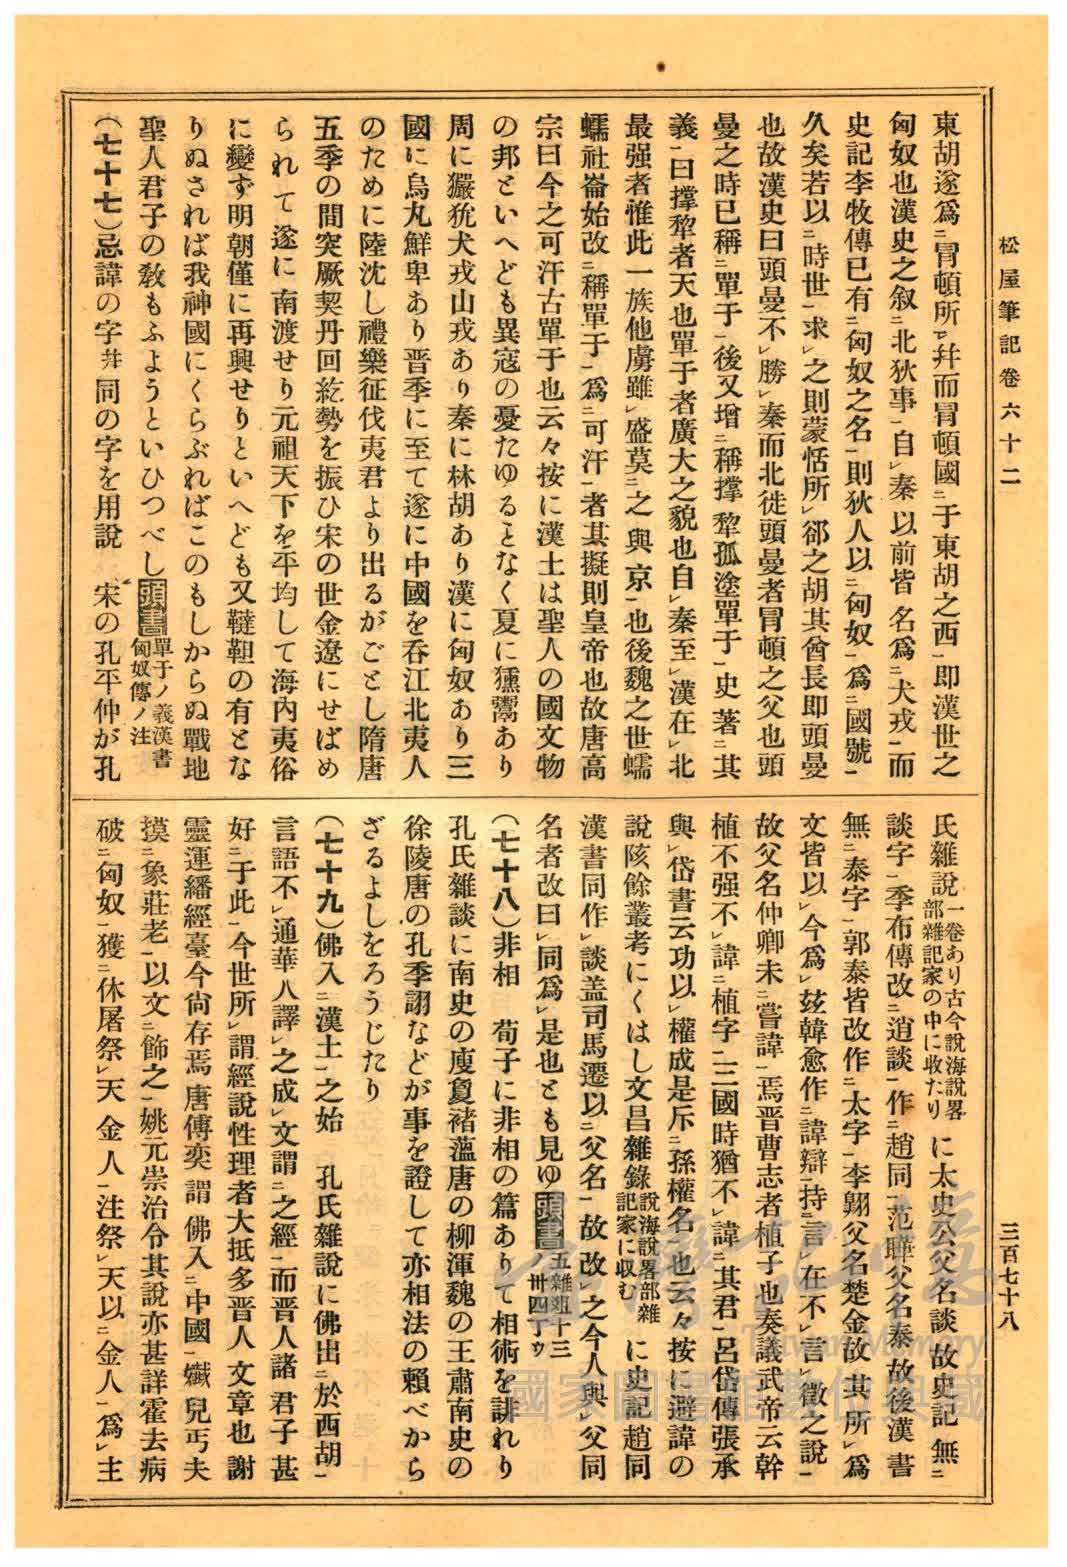 松屋筆記卷六十二
三百七十八
東胡遂爲㆓冐頓所㆒㆑幷而冐頓國㆓于東胡之西㆒卽漢世之
匈奴也漢史之叙㆓北狄事㆒自㆑秦以前皆名爲㆓犬戎㆒而
史記李牧傳已有㆓匈奴之名㆒則狄人以㆓匈奴㆒爲㆓國號㆒
久矣若以㆓時世㆒求㆑之則蒙恬所㆑郤之胡其酋長卽頭曼
也故漢史曰頭曼不㆑勝㆑秦而北徙頭曼者冐頓之父也頭
曼之時已稱㆓單于㆒後又增㆓稱撑犂孤塗單于㆒史著㆓其
義㆒曰撑犂者天也單于者廣大之貌也自㆑秦至㆑漢在㆑北
最强者惟此一族他虜雖㆑盛莫㆓之與京㆒也後魏之世蠕
蠕社崙始改㆓稱單于㆒爲㆓可汗㆒者其擬則皇帝也故唐高
宗曰今之可汗古單于也云々按に漢土は聖人の國文物
の邦といへども異寇の憂たゆるとなく夏に獯鬻あり
周に玁狁犬戎山戎あり秦に林胡あり漢に匈奴あり三
國に烏丸鮮卑あり晋季に至て遂に中國を呑江北夷人
のために陸沈し禮樂征伐夷君より出るがごとし隋唐
五季の間突厥契丹回紇勢を振ひ宋の世金遼にせばめ
られて遂に南渡せり元祖天下を平均して海內夷俗
に變ず明朝僅に再興せりといへども又韃靼の有とな
りぬされば我神國にくらぶればこのもしからぬ戰地
聖人君子の敎もふようといひつべし頭書單于ノ義漢書匈奴傳ノ注
(七十七)忌諱の字幷同の字を用說　宋の孔平仲が孔
氏雜說一卷あり古今說海說畧部雜記家の中に收たりに太史公父名談故史記無㆓
談字㆒季布傳改㆓逍談㆒作㆓趙同㆒范曄父名泰故後漢書
無㆓泰字㆒郭泰皆改作㆓太字㆒李翺父名楚金故其所㆑爲
文皆以㆑今爲㆑玆韓愈作㆓諱辯㆒持㆑言㆑在不㆑言㆑徵之說㆒
故父名仲卿未㆓嘗諱㆒焉晋曹志者植子也奏議武帝云幹
植不强不㆑諱㆓植字㆒三國時猶不㆑諱㆓其君㆒呂岱傳張承
與㆑岱書云功以㆑權成是斥㆓孫權名㆒也云々按に避諱の
說陔餘叢考にくはし文昌雜錄說海說畧部雜記家に収むに史記趙同
漢書同作㆑談盖司馬遷以㆓父名㆒故改㆑之今人與㆑父同
名者改曰㆑同爲㆑是也とも見ゆ頭書五雜爼十三ノ卅四丁ウ
(七十八)非相　荀子に非相の篇ありて相術を誹れり
孔氏雜談に南史の庾夐褚薀唐の柳渾魏の王肅南史の
徐陵唐の孔季詡などが事を證して亦相法の賴べから
ざるよしをろうじたり
(七十九)佛入㆓漢土㆒之始　孔氏雜說に佛出㆓於西胡㆒
言語不㆑通華人譯㆑之成㆑文謂㆓之經㆒而晋人諸君子甚
好㆓于此㆒今世所㆑謂經說性理者大抵多晋人文章也謝
靈運繙經臺今尙存焉唐傅奕謂佛入㆓中國㆒孅兒丐夫
摸㆓象莊老㆒以文㆓飾之㆒姚元崇治令其說亦甚詳霍去病
破㆓匈奴㆒獲㆓休屠祭㆑天金人㆒注祭㆑天以㆓金人㆒爲㆑主
臺灣記憶
Taiwan Memory
國家圖書館數位典藏